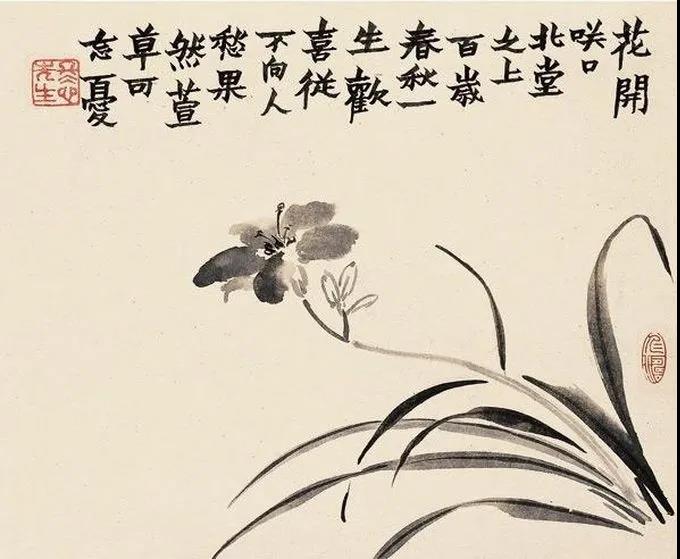 花開
咲口
北堂
之上
百歲
春秋一
生歡
喜從
不向人
愁果
然萱
草可
忘憂
冬心
先生